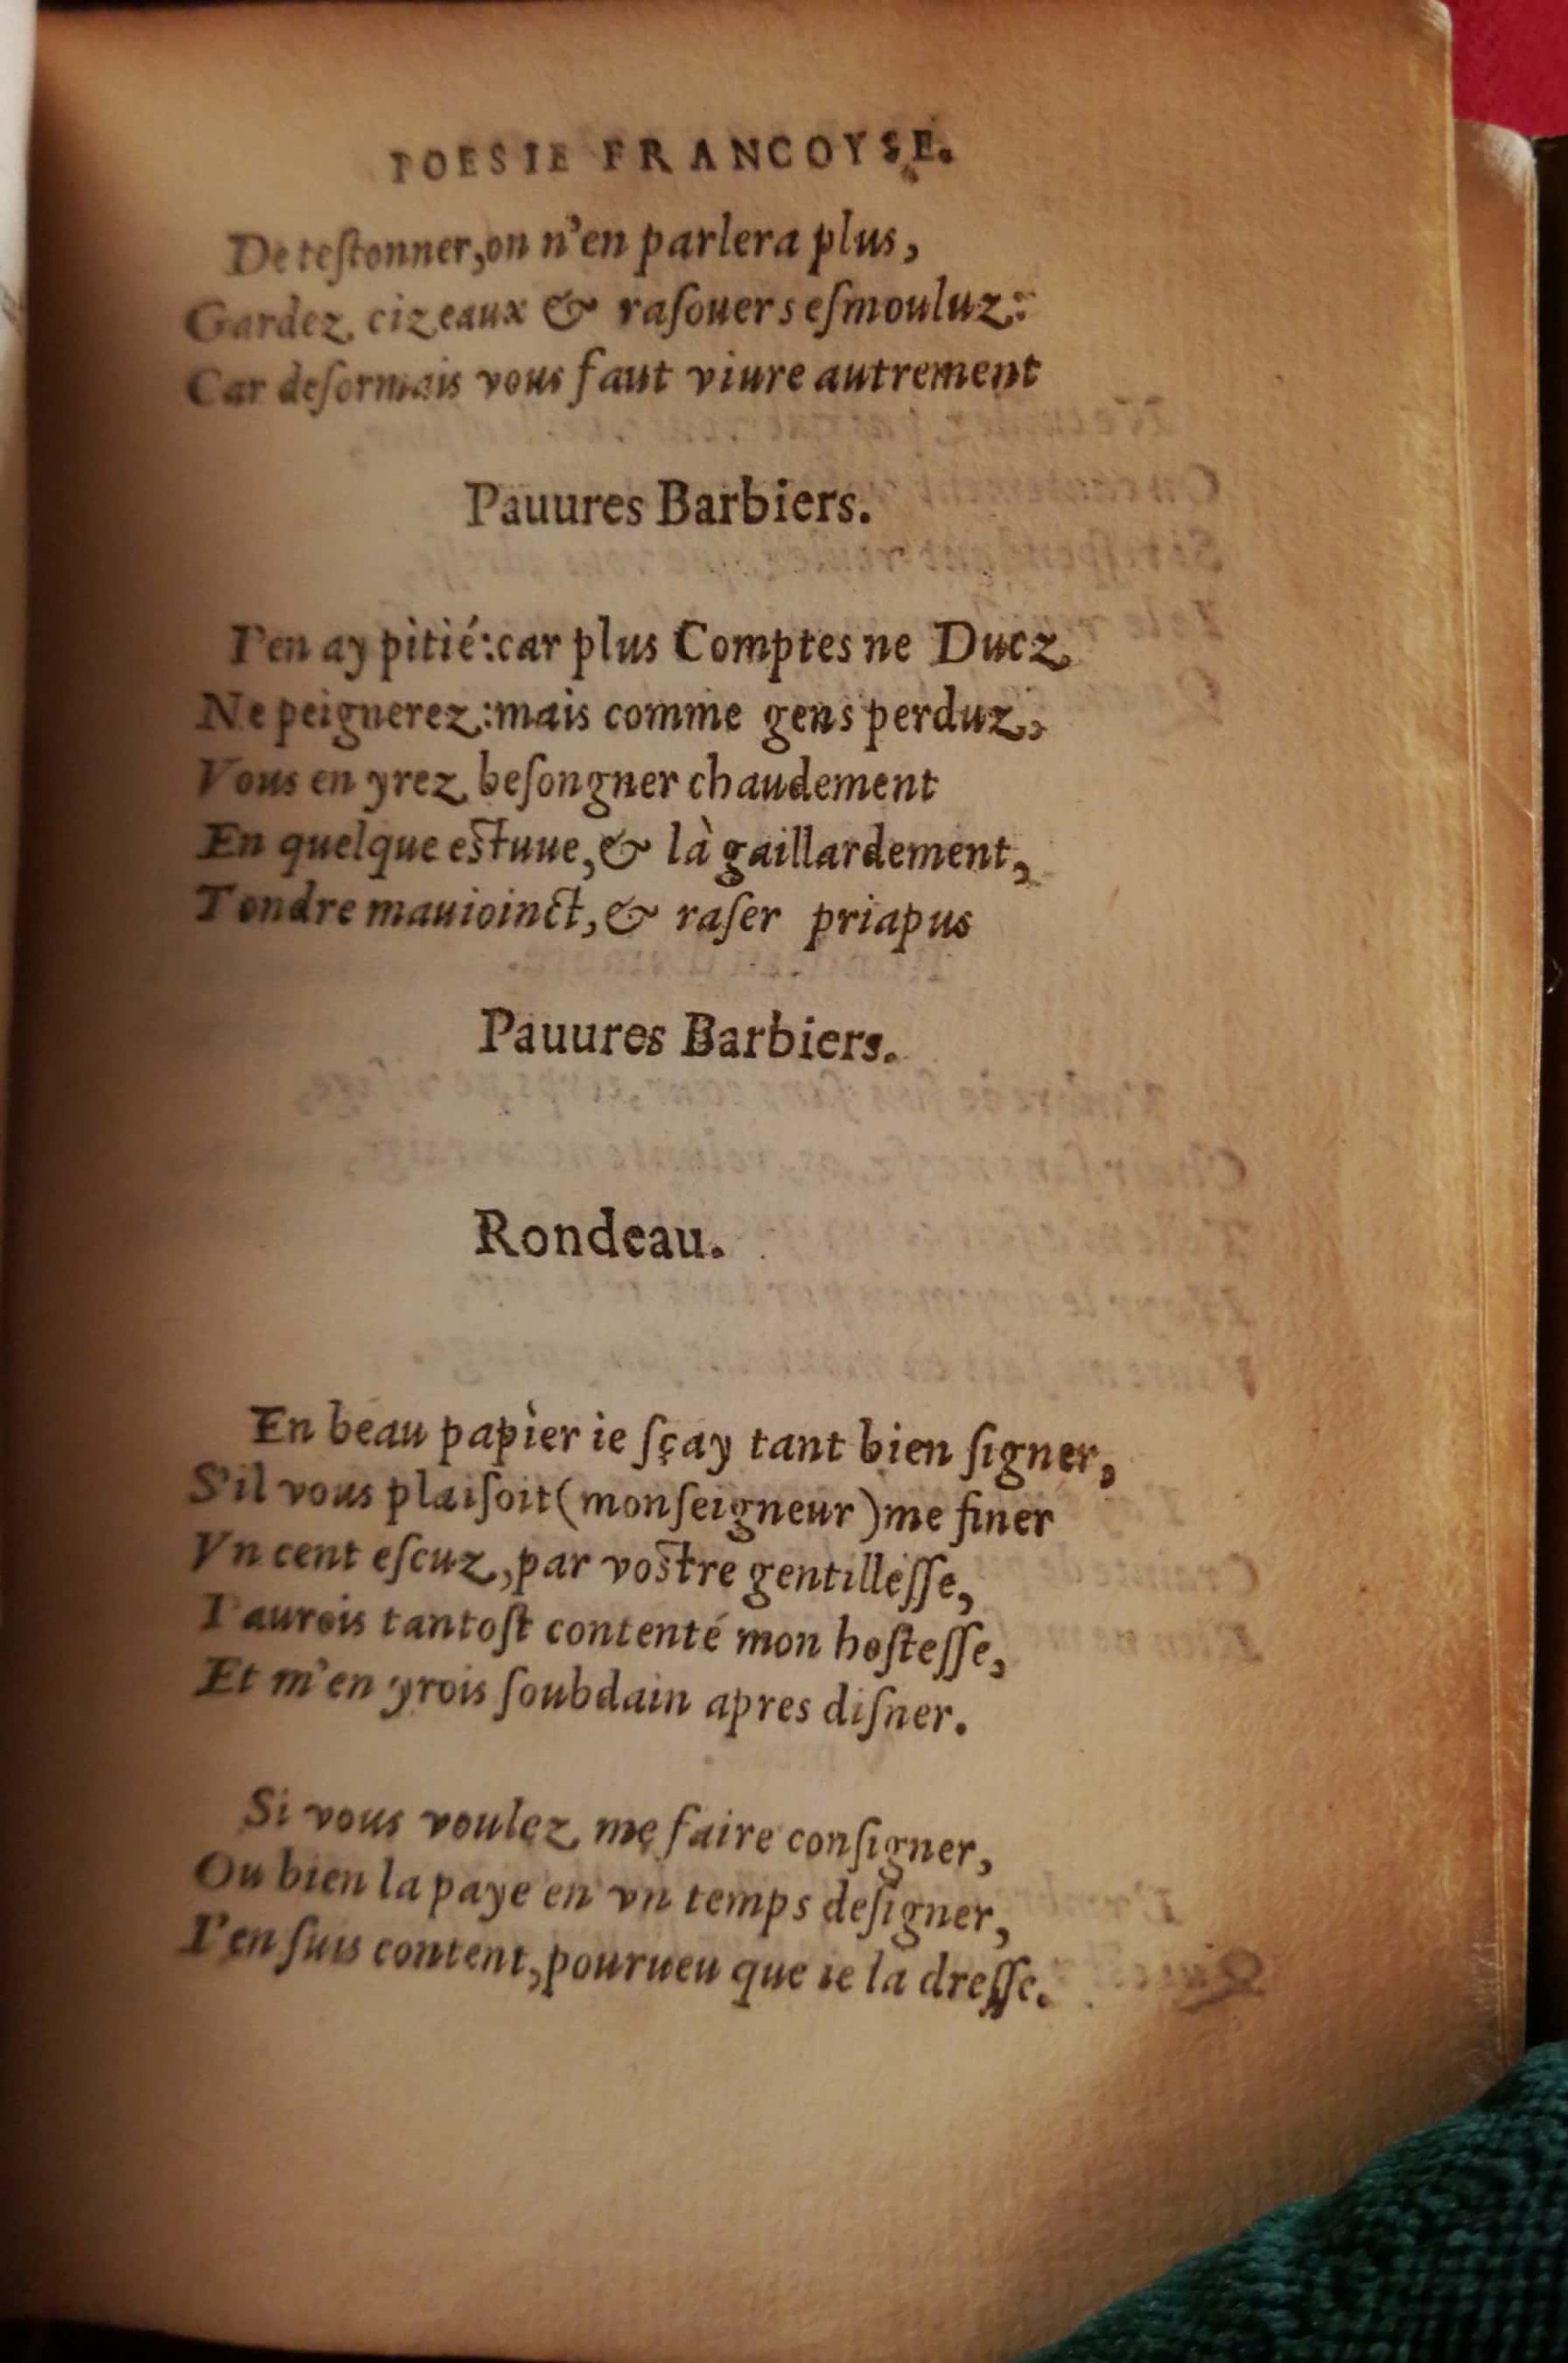 POESIE FRANCOYSE.
De teſtonner, on n'en parlera plus,
Gardez cizeaux & raſouers eſmouluz:
Car deſormais vous faut viure autrement
Pauures Barbiers.
I'en ay pitié: car plus Comptes ne Ducz
Ne peignerez: mais comme gens perduz,
Vous en yrez beſongner chaudement
En quelque eſtuue, & là gaillardement,
Tondre mauioinct, & raſer priapus
Pauures Barbiers.
Rondeau.
En beau papier ie ſçay tant bien ſigner,
S'il vous plaiſoit (monſeigneur) me finer
Vn cent eſcuz, par voſtre gentilleſſe,
I'aurois tantoſt contenté mon hoſteſſe,
Et m'en yrois ſoubdain apres diſner.
Si vous voulez me faire conſigner,
Ou bien la paye en vn temps deſigner,
I'en ſuis content, pourueu que ie la dreſſe.